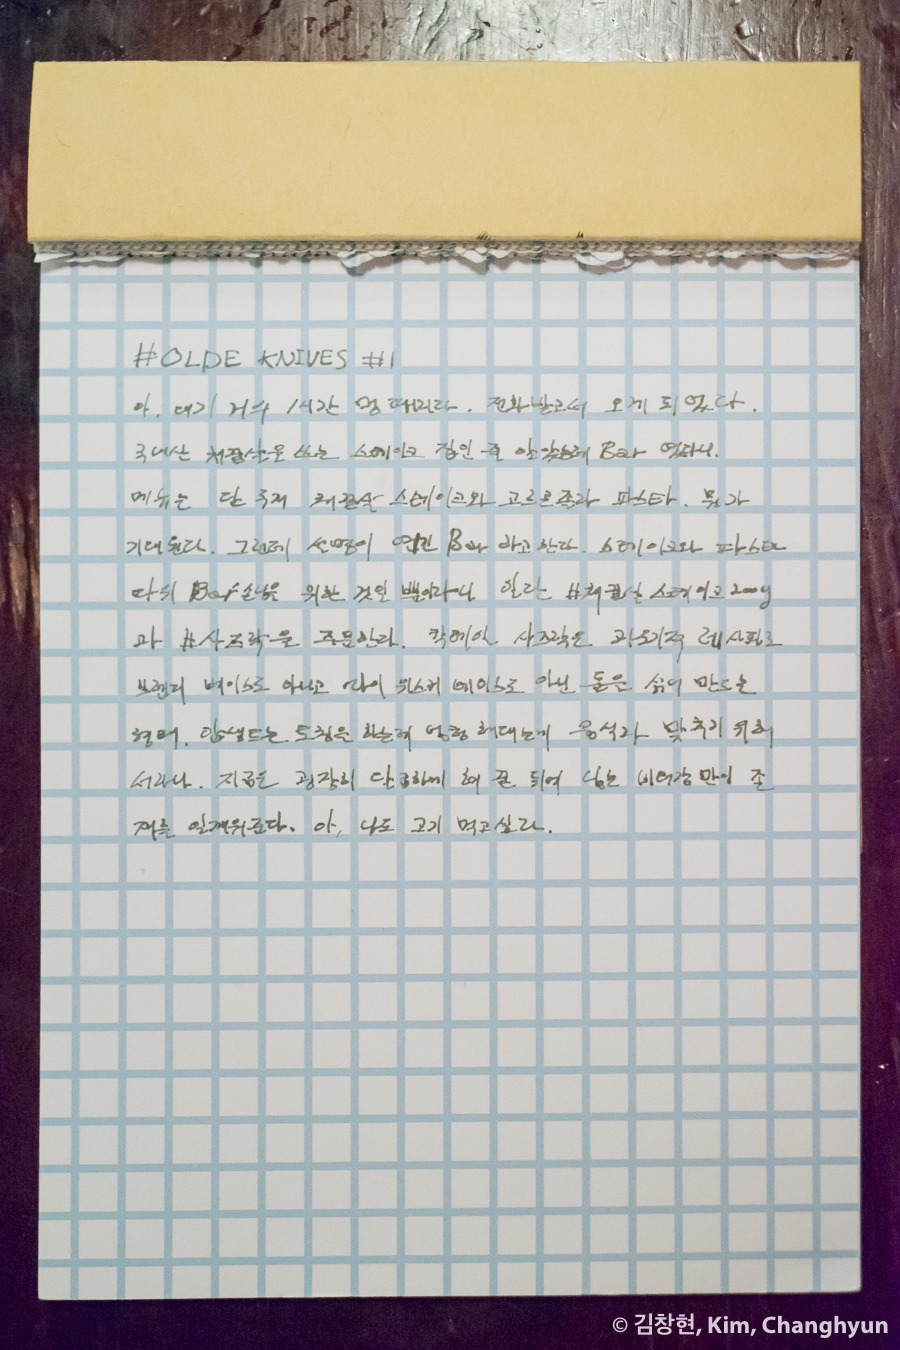 #OLDE KNIVES #1
아, 대기 거의 1시간 멍 때리다. 전화받고서 오게 되었다.
국내산 채끝살을 쓰는 스테이크 집인 줄 알았는데 Bar 였다니.
메뉴는 단 두개 채끝살 스테이크와 고르곤졸라 파스타. 뭔가
기대된다. 그런데 선명이 Bar 라고 한다. 스테이크와 파스타
따위 Bar 손님을 위한 것일 뿐이라니 일단 #채끝살 스테이크 200g
과 #사즈락을 주문한다. 칵테일 사즈락은 과도기적 레시피로
브랜디 베이스로 아니고 라이 위스키 베이스로 아닌 둘은 섞어 만드는
형태. 압생트는 도칭을 하는데 음식과 맞추기 위해
서라나. 지금은 굉장히 단 남는 만이 존
재를 일깨워준다. 아, 나도 고기 먹고싶다.
© 김창현, Kim, Changhyun